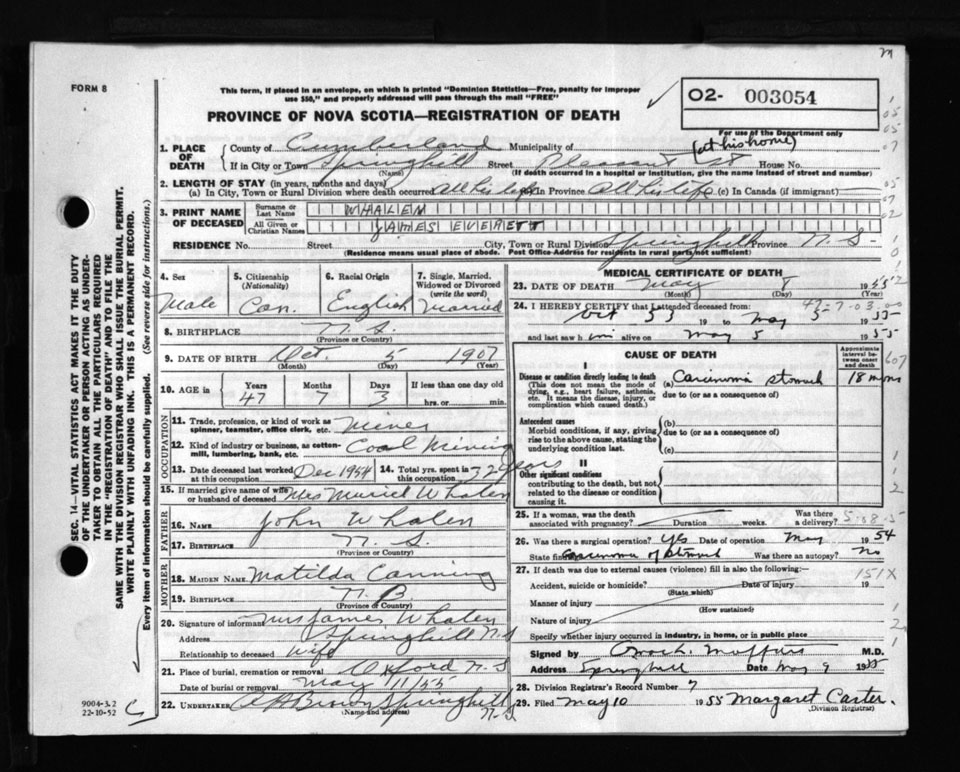 m
FORM 8
This form, if placed in an envelope, on which is printed "Dominion Statistics—Free, penalty for improper
use $50," and properly addressed will pass through the mail "FREE"
PROVINCE OF NOVA SCOTIA—REGISTRATION OF DEATH
02- 003054
For use of the Department only
1. PLACE OF DEATH
County of Cumberland Municipality of (at his home)
If in City or Town Springhill Street Pleasant St House No.
(Name) (If death occurred in a hospital or institution, give the name instead of street and number)
2. LENGTH OF STAY (in years, months and days)
(a) In City, Town or Rural Division where death occurred all his life In Province all his life (c) In Canada (if immigrant)
3. PRINT NAME OF DECEASED
Surname or Last Name WHALEN
All Given or Christian Names JAMES EVERETT
RESIDENCE No. Street City, Town or Rural Division Springhill Province N.S.
(Residence means usual place of abode. Post Office Address for residents in rural parts not sufficient)
4. Sex
Male
5. Citizenship
(Nationality)
Can.
6. Racial Origin
English
7. Single, Married, Widowed or Divorced
(write the word)
Married
8. BIRTHPLACE N.S.
(Province or Country)
9. DATE OF BIRTH Oct. 5 1907
(Month) (Day) (Year)
10. AGE in Years Months Days If less than one day old
47 7 3 hrs. or min.
OCCUPATION
11. Trade, profession, or kind of work as
spinner, teamster, office clerk, etc. Miner
12. Kind of industry or business, as cotton-
mill, lumbering, bank, etc. Coal Mining
13. Date deceased last worked at this occupation Dec 1954 14. Total yrs. spent in this occupation years
15. If married give name of wife
or husband of deceased Mrs Muriel Whalen
FATHER
16. NAME John Whalen
17. BIRTHPLACE N.S.
(Province or Country)
MOTHER
18. MAIDEN NAME Matilda Canning
19. BIRTHPLACE N.B
(Province or Country)
20. Signature of informant Mrs James Whalen
Address Springhill N.S
Relationship to deceased Wife
21. Place of burial, cremation or removal Oxford N.S
Date of burial or removal May 11/55
22. UNDERTAKER Brown Springhill N.S.
(Name and address)
MEDICAL CERTIFICATE OF DEATH
23. DATE OF DEATH May 8 1955
(Month) (Day) (Year)
24. I HEREBY CERTIFY that I attended deceased from:
Oct 53 19 to May 5 1955
and last saw him alive on May 5 1955
CAUSE OF DEATH
Approximate interval between onset and death
I
Disease or condition directly leading to death
(This does not mean the mode of
dying, e.g., heart failure, asthenia,
etc. It means the disease, injury, or
complication which caused death.)
(a) Carcinoma stomach 18 mons
due to (or as a consequence of)
Antecedent causes
Morbid conditions, if any, giving
rise to the above cause, stating the
underlying condition last.
(b)
due to (or as a consequence of)
(c)
II
Other significant conditions
contributing to the death, but not
related to the disease or condition
causing it.
25. If a woman, was the death
associated with pregnancy? Duration weeks. Was there a delivery?
26. Was there surgical operation? yes Date of operation May 1954
State findings Carcinoma of stomach Was there an autopsy? No
27. If death was due to external causes (violence) fill in also the following:—
151X
Accident, suicide or homicide? Date of injury 19
(State which)
Manner of injury
(How sustained)
Nature of injury
Specify whether injury occurred in industry, in home, or in public place
Signed by M.D.
Address Springhill Date May 9 1955
28. Division Registrar's Record Number 7
29. Filed May 10 1955 Margaret Carter.
(Division Registrar)
SEC. 14—VITAL STATISTICS ACT MAKES IT THE DUTY
OF THE UNDERTAKER OR PERSON ACTING AS UNDER-
TAKER TO OBTAIN ALL THE PARTICULARS REQUIRED
IN THE "REGISTRATION OF DEATH" AND TO FILE THE
SAME WITH THE DIVISION REGISTRAR WHO SHALL ISSUE THE BURIAL PERMIT.
WRITE PLAINLY WITH UNFADING INK. THIS IS A PERMANENT RECORD.
Every item of information should be carefully supplied. (See reverse side for instructions.)
9004-3.2
22-10-52